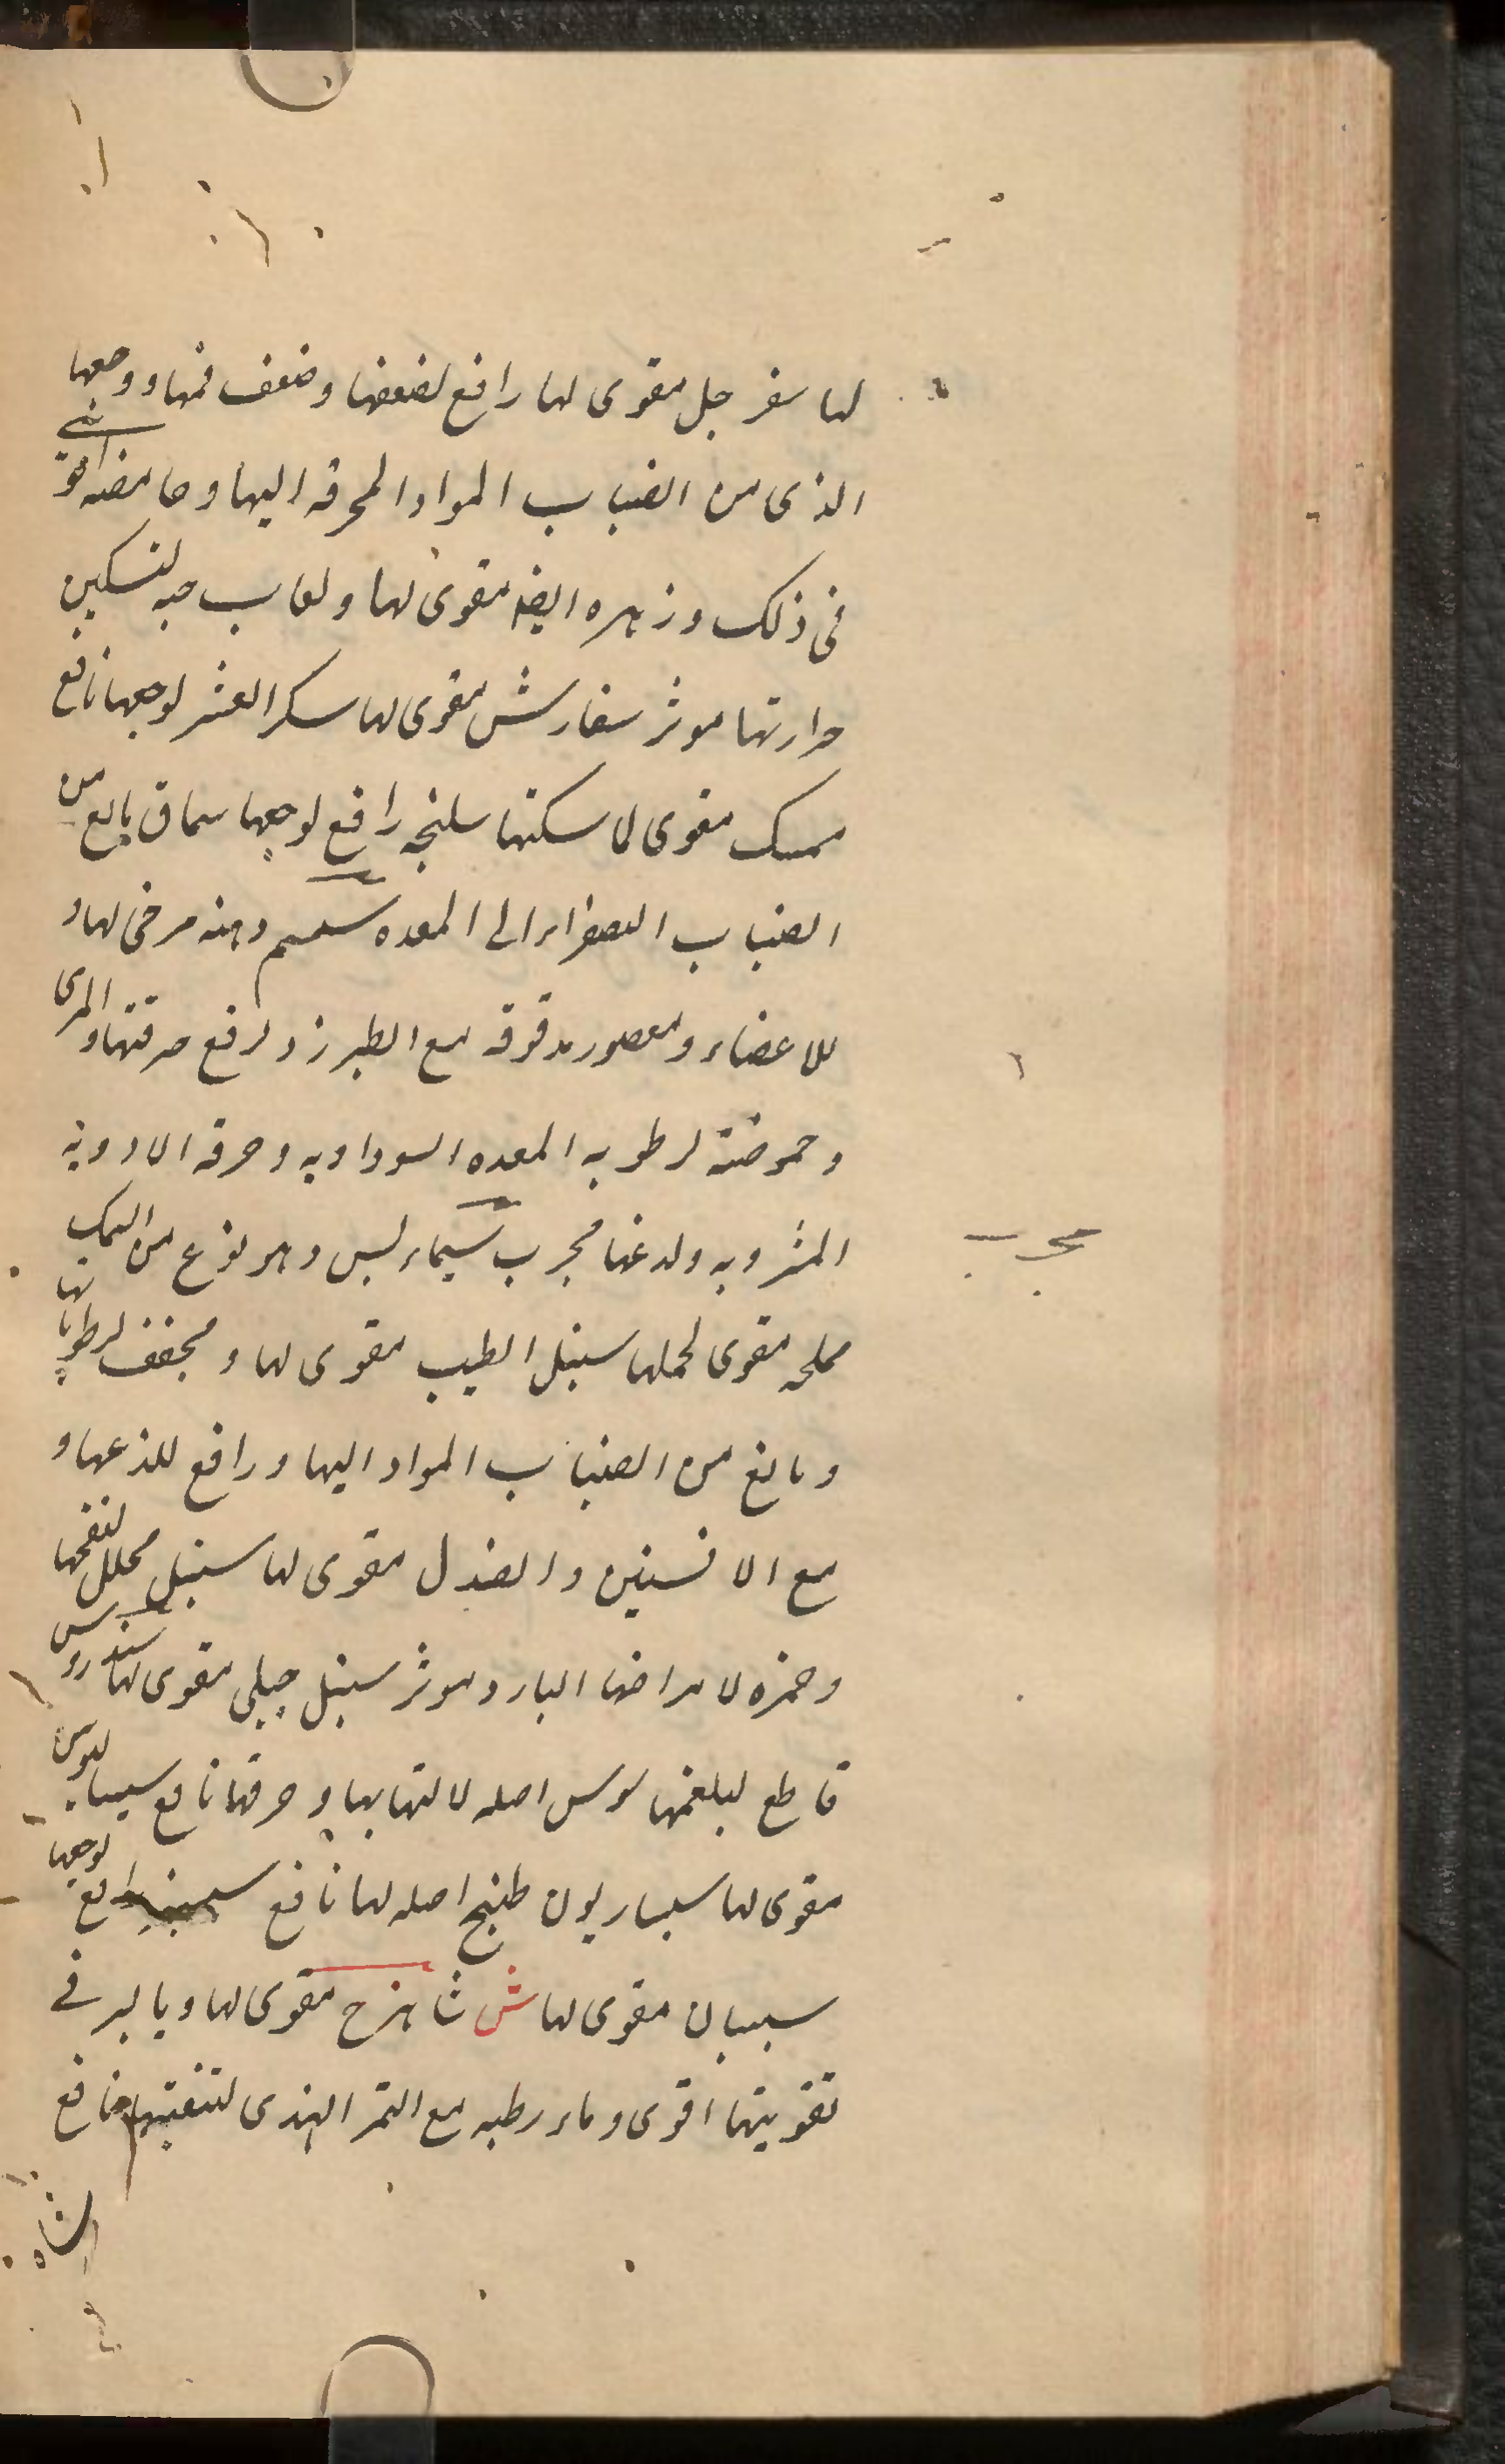 لها سفرجل مقوی لها رافع لضعفها وضعف فمها ووجعها
الذی من انصباب المواد المحرقه الیها وحامضه اقوی
فی ذلک وزهره ایضه مقوی لها ولعاب حبه لتسکین
حرارتها موثر سفارش مقوی لها سکر العشر لوجعها نافع
سک مقوی لماسکتها سلیخه رافع لوجعها سماق مانع من
انصباب الصفراء الی المعده سمسم دهنه مرخی لها و
للاعضاء و مدقوقه مع الطبرزد لرفع حرقتها والمری
وحموضة لرطوبه المعده السوداویه وحرقه الادویه
المشروبه ولدغها مجرب لیس وهو نوع من السمک
مجرب
مملحه مقوی لحملها سنبل الطیب مقوی لها ومجفف لرطوباتها
ومانع من انصباب المواد الیها ورافع للذعها و
مع الافسنتین والصندل مقوی لها سنبل محلل لنفخها
لامراضها البارد موثر سنبل جبلی مقوی لها سندروس
قاطع لبلغمها سوس اصله لالتهابها وحرقها نافع
مقوی لها طبیخ اصله لها نافع لوجعها
سیسبان مقوی لها ش شاهترج مقوی لها ویابسه فی
تقویتها اقوی وماء رطبه مع التمر الهندی لتنقیتها نافع